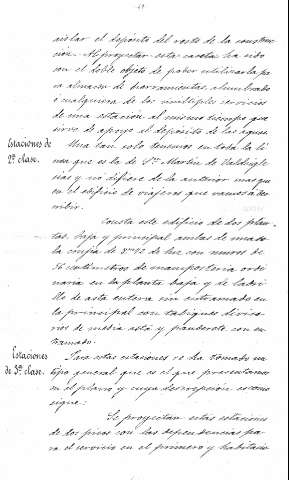 aislar el depósito del resto de la construc-
ción. Al proyectar esta caseta ha sido
con el doble objeto de poder utilizarla pa-
ra almacen de herramientas, alumbrado
ó cualquiera de los multiples servicios
de una estación al mismo tiempo que
sirve de apoyo al depósito de las aguas.
Estaciones de
2ª clase.
Una tan solo tenemos en toda la lí-
nea que es la de Sn. Martin de Valdeigle-
sias y no difiere de la anterior mas que
en el edificio de viajeros que vamos á des-
cribir.
Consta este edificio de dos plan-
tas, baja y principal ambas de una so-
la crujía de de luz con muros de
56 centimetros de mamposteria ordi-
naria en la planta baja y de ladri-
llo de asta entera sin entramado en
la principal con tabiques diviso-
rios de media asta y panderete con en-
tramado.
Estaciones
de 3ª clase.
Para estas estaciones se ha tomado un
tipo general que es el que presentamos
en el plano y cuya descripción es como
sigue:
Se proyectan estas estaciones
de dos pisos con las dependencias pa-
ra el servicio en el primero y habitacio